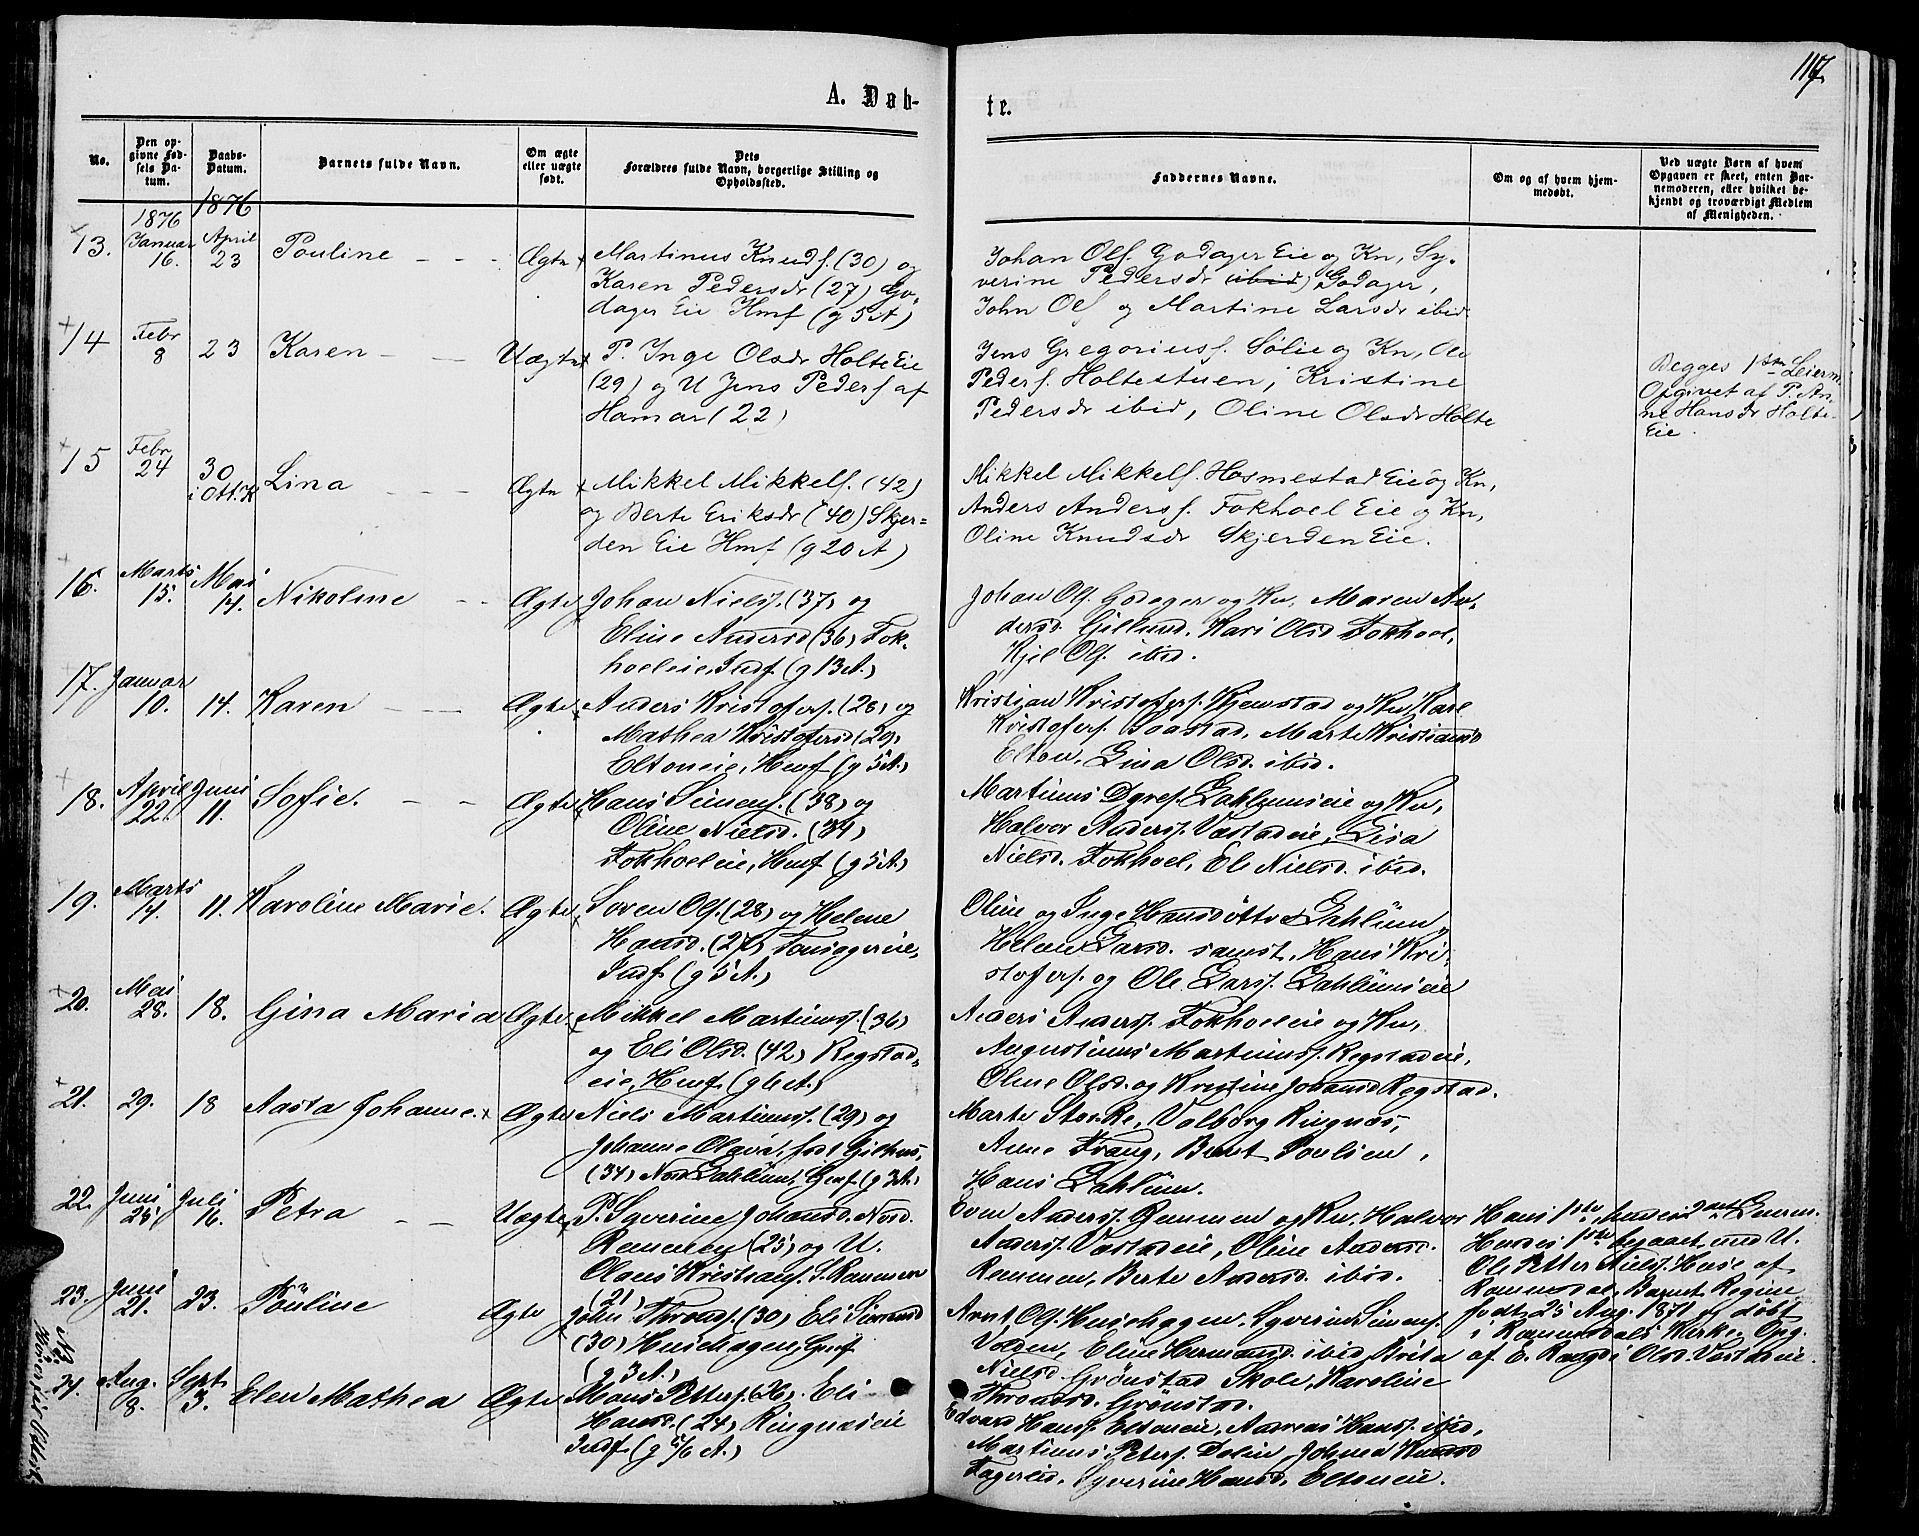 117.
A. Dab-
te.
No.
Den op-
givne Fød-
sels Da-
tum.
Daabs-
Datum.
Barnets fulde Navn.
Om ægte
eller uægte
født.
Dets
Forældres fulde Navn, borgerlige Stilling og
Opholdssted.
Faddernes Navne.
Om og af hvem hjem-
medøbt.
Ved uægte Børn af hvem
Opgaven er skeet, enten Bar-
nemoderen, eller hvilket be-
kjendt og troværdigt Medlem
af Menigheden.
1876 1876
13. Januar 16. April 23 Pouline Ægte Martinus Knuds. (30) og
Karen Pedersdr (27) Go-
dager Eie Hmf (g 5 A)
Johan Ols. Godager Eie og Kn, Sy-
verine Pedersdr (ibid) Godager,
John Ols og Martine Larsdr ibid
14 Febr 8 23 Karen Uægte P. Inge Olsdr Holte Eie
(29) og U Jens Peders af
Hamar (22)
Jens Gregoriuss. Sølie og Kn, Ole
Peders. Holtestuen, Kristine
Pedersdr ibid, Oline Olsdr Holte
Begges 1ste Leierm.
Opgivet af P. An-
ne Hansdr Holte-
Eie.
15 Febr 24 30 i Ott. K Lina Ægte Mikkel Mikkels. (42)
og Berte Eriksdr (40) Skjer=
den Eie Hmf (g 20 A)
Mikkel Mikkels. Hosmestad Eie og Kn,
Anders Anders. Fokhoel Eie og Kn,
Oline Knudsdr Skjerden Eie.
16. Marts 15. Mai 14. Nikoline Ægte Johan Niels. (37) og
Eline Andersd (36) Fok-
hoeleie, Indf. (g 13 A.)
Johan Ols. Godager og Kn, Maren An-
dersd. Gillund, Kari Olsd Fokhoel,
Kjel Ols. ibid.
17. Januar 10. 14. Karen Ægte Anders Kristofers. (28) og
Mathea Kristofersd (29)
Eltoneie, Hmf (g 5 A.)
Kristjan Kristofers. Kjemstad og Kn, Kare
Kristofers. Boastad, Marte Kristiansd
Elton, Lina Olsd. ibid.
18. April 22. Juni 11. Sofie. Ægte Hans Simens. (38) og
Oline Nielsd. (34)
Fokhoeleie, Hmf (g 5 A)
Martinus Dyres. Dahlumseie og Kn,
Halvor Anders. Vestadeie, Lisa
Nielsd. Fokhoel, Ele Nielsd. ibid.
19. Marts 14. 11. Karoline Marie. Ægte Soren Ols. (28) og Helene
Hansd. (27) Tonsagereie,
Indf (g 5 A.)
Oline og Inge Hansdøttre Dahlum,
Helene Larsd. samst, Hans Kri-
stofers. og Ole Lars. Dahlumseie
20. Mai 28. 18. Gina Maria Ægte Mikkel Martinus. (36)
og Eli Olsd. (42) Regstad-
eie, Hmf. (g 6 A.)
Anders Anders. Fokhoeleie og Kn,
Augustinus Martinus. Regstadeie,
Oline Olsd. og Kristine Johansd Regstad.
21. 29. 18 Aasta Johanne. Ægte Niels Martinus. (29) og
Johanne Olava, født Gilhus,
(34) Nord Dahlum, Gmf. (g 3 A.)
Marte Storke, Valborg Ringnæs,
Anne Frang, Bernt Poulsen,
Hans Dahlum.
22. Juni 25 Juli 16. Petra Uægte P. Syverine Johansd. Nord.
Remmen (25) og U.
Olaus Kristians. S. Remmen
(21)
Even Anders. Remmen og Kn, Halvor
Anders. Vestadeie, Oline Andersd.
Remmen, Berte Andersd. ibid.
Hans 1ste, hendes 2det Leierm.
Hendes 1ste begaaet med U.
Ole Petter Niels. Huse af
Romsdal, Barnet Regine
født 25 Aug. 1871 og døbt
i Romsdals Kirke, Opg.
af E. Rangdi Olsd. Vestadeie.
23. Juni 21. 23. Pouline Ægte John Thronds. (30) Eli Simensd
(30) Husehagen, Gmf
(g 3 A.)
Arnt Ols. Husehagen, Syverin Simens.
Volden, Eline Hermansd. ibid, Brita
Nielsd. Grønstad Skole, Karoline
Throndsd. Grønstad.
24. Aug. 8. Sept. 3. Elen Mathea Ægte Mons Petters. (26). Eli
Hansd. (24) Ringnæseie
Indf. (g 5/6 A.)
Edvard Hans. Eltoneie, Andreas Hans. ibid,
Martinus Peters. Dolin, Johanna Knudsd
Fagerlid, Syverine Hansd. Eltoneie.